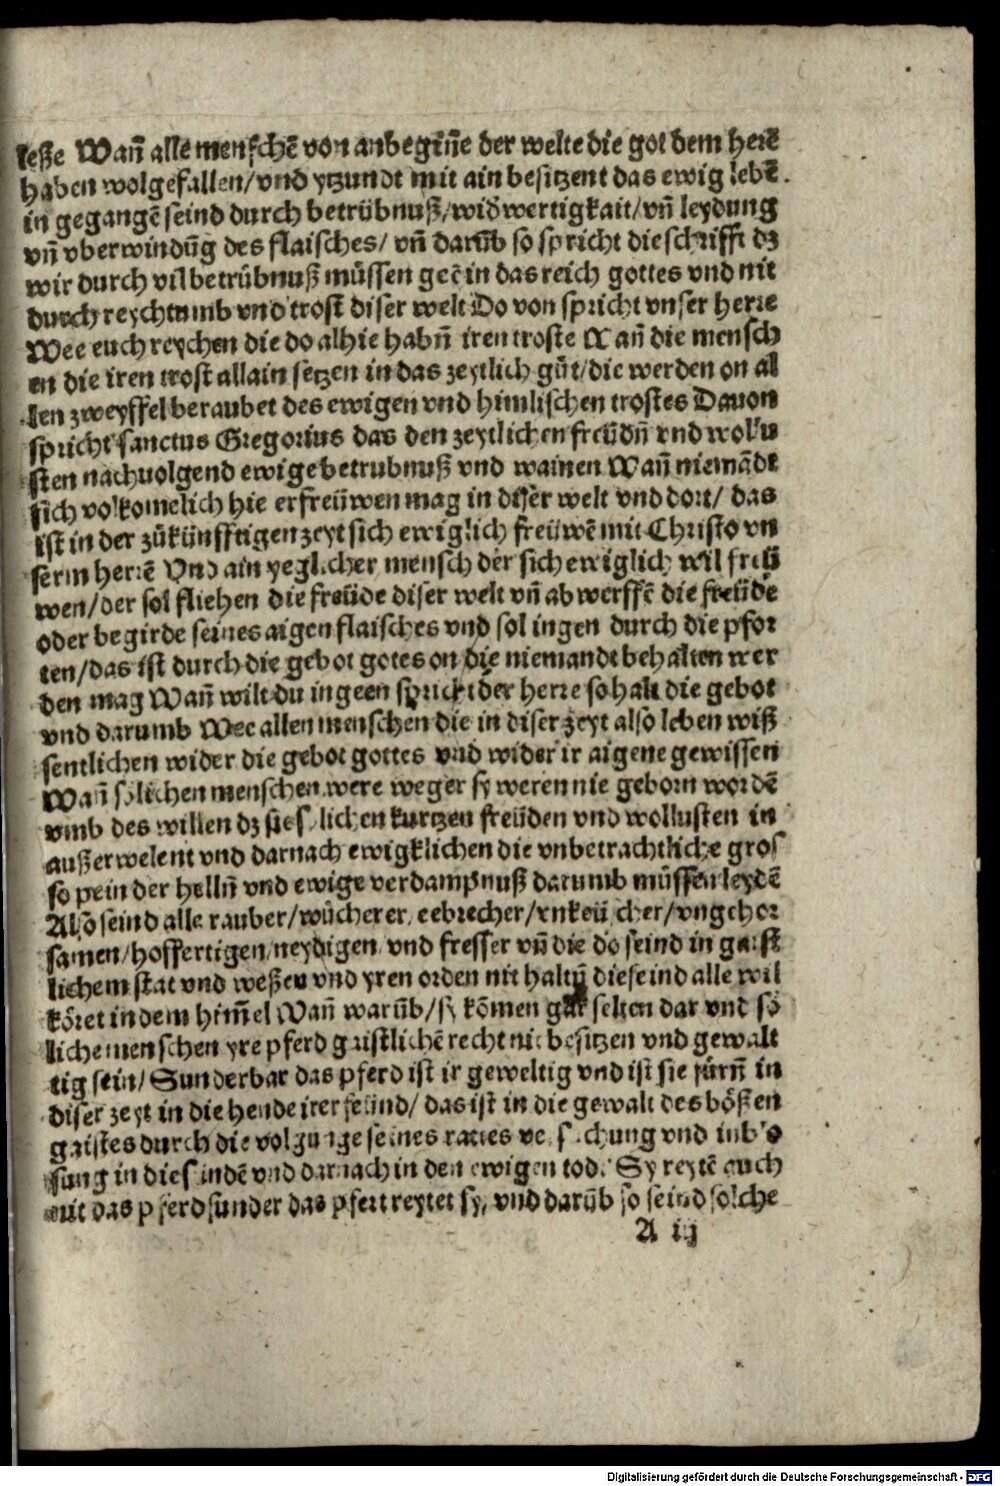 leße Wañ alle menschē von anbegiñe der welte die got dem herē
haben wolgefallen/vnd ytzundt mit ain besitzent das ewig lebē.
in gegangē seind durch betrübnuß/widwertigkait/vñ leydung
vñ vberwindūg des flaisches/ vñ darūb so spricht die schrifft dz
wir durch vil betrübnuß müssen geē in das reich gottes vnd nit
durch reychtumb vnd trost diser welt Do von spricht vnser herre
Wee euch reychen die do alhie habñ iren troste Wañ die mensch
en die iren trost allain setzen in das zeytlich gůt/die werden on al
len zweyffel beraubet des ewigen vnd himlischen trostes Dauon
spricht sanctus Gregorius das den zeytlichen freüdñ vnd wollu
sten nachuolgend ewige betrubnuß vnd wainen Wañ niemādt
sich volkomelich hie erfreüwen mag in diser welt vnd dort/ das
ist in der zůkünfftigen zeyt sich ewiglich freüwē mit Christo vn
serm herrē Vnd ain yeglicher mensch der sich ewiglich wil freü
wen/der sol fliehen die freüde diser welt vñ abwerffē die freüde
oder begirde seines aigen flaisches vnd sol ingen durch die pfor
ten/das ist durch die gebot gotes on die niemandt behalten wer
den mag Wañ wilt du ingeen spricht der herre so halt die gebot
vnd darumb Wee allen menschen die in diser zeyt also leben wiß
sentlichen wider die gebot gottes vnd wider ir aigene gewissen
Wañ sölichen menschen were weger sy weren nie geborn wordē
vmb des willen dz sie sölichen kurtzen freüden vnd wollusten in
außerwelent vnd darnach ewigklichen die vnbetrachtliche gros
so pein der hellñ vnd ewige verdampnuß darumb müssen leydē
Also seind alle rauber/wůcherer, eebrecher/vnkeüscher/vngehor
samen/hoffertigen/neydigen/vnd fresser vñ die do seind in gaist
lichem stat vnd weßen vnd yren orden nit haltñ die seind alle wil
köret in dem him̄el Wañ warūb/sy kōmen gar selten dar vnd sö
liche menschen yre pferd gaistlichē recht nit besitzen vnd gewalt
tig sein/ Sunderbar das pferd ist ir geweltig vnd ist sie fürñ in
diser zeyt in die hende irer feünd/ das ist in die gewalt des bößen
gaistes durch die volgunge seines rattes versůchung vnd inblo
sung in die sündē vnd darnach in den ewigen tod. Sy reytē auch
nit das pferd sunder das pfert reytet sy, vnd darūb so seind solche
A iij
Digitalisierung gefördert durch die Deutsche Forschungsgemeinschaft - DFG